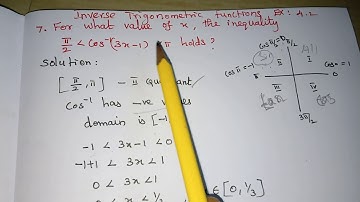 Inverse Trigonometric functions Ex: 4.2
7. For what value of x, the inequality
π/2 < cos⁻¹(3x-1) π holds?
Solution:
[π/2, π] - II quadrant
cos⁻¹ has -ve values
domain is [-1
-1 < 3x-1 < 0
-1+1 < 3x < 1
0 < 3x < 1
0 < x < 1/3
∈ [0, 1/3]
cos π/2 = 0 π/2
cos π = -1
π
cos 0 = 1
I
III
IV
3π/2